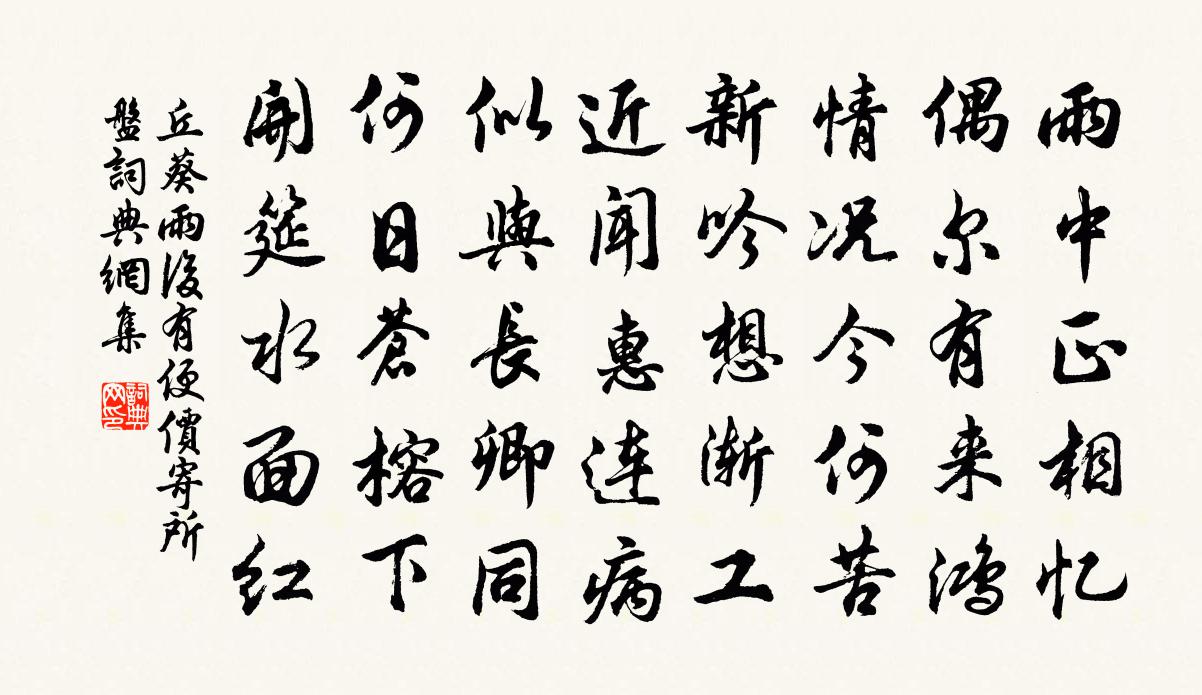 雨中正相忆
偶尔有来鸿
情况今何苦
新吟想渐工
近闻惠连病
似與長卿同
何日蒼榕下
開筵水面红
丘葵雨後有便價寄所
盤詞典網集
詞典网印